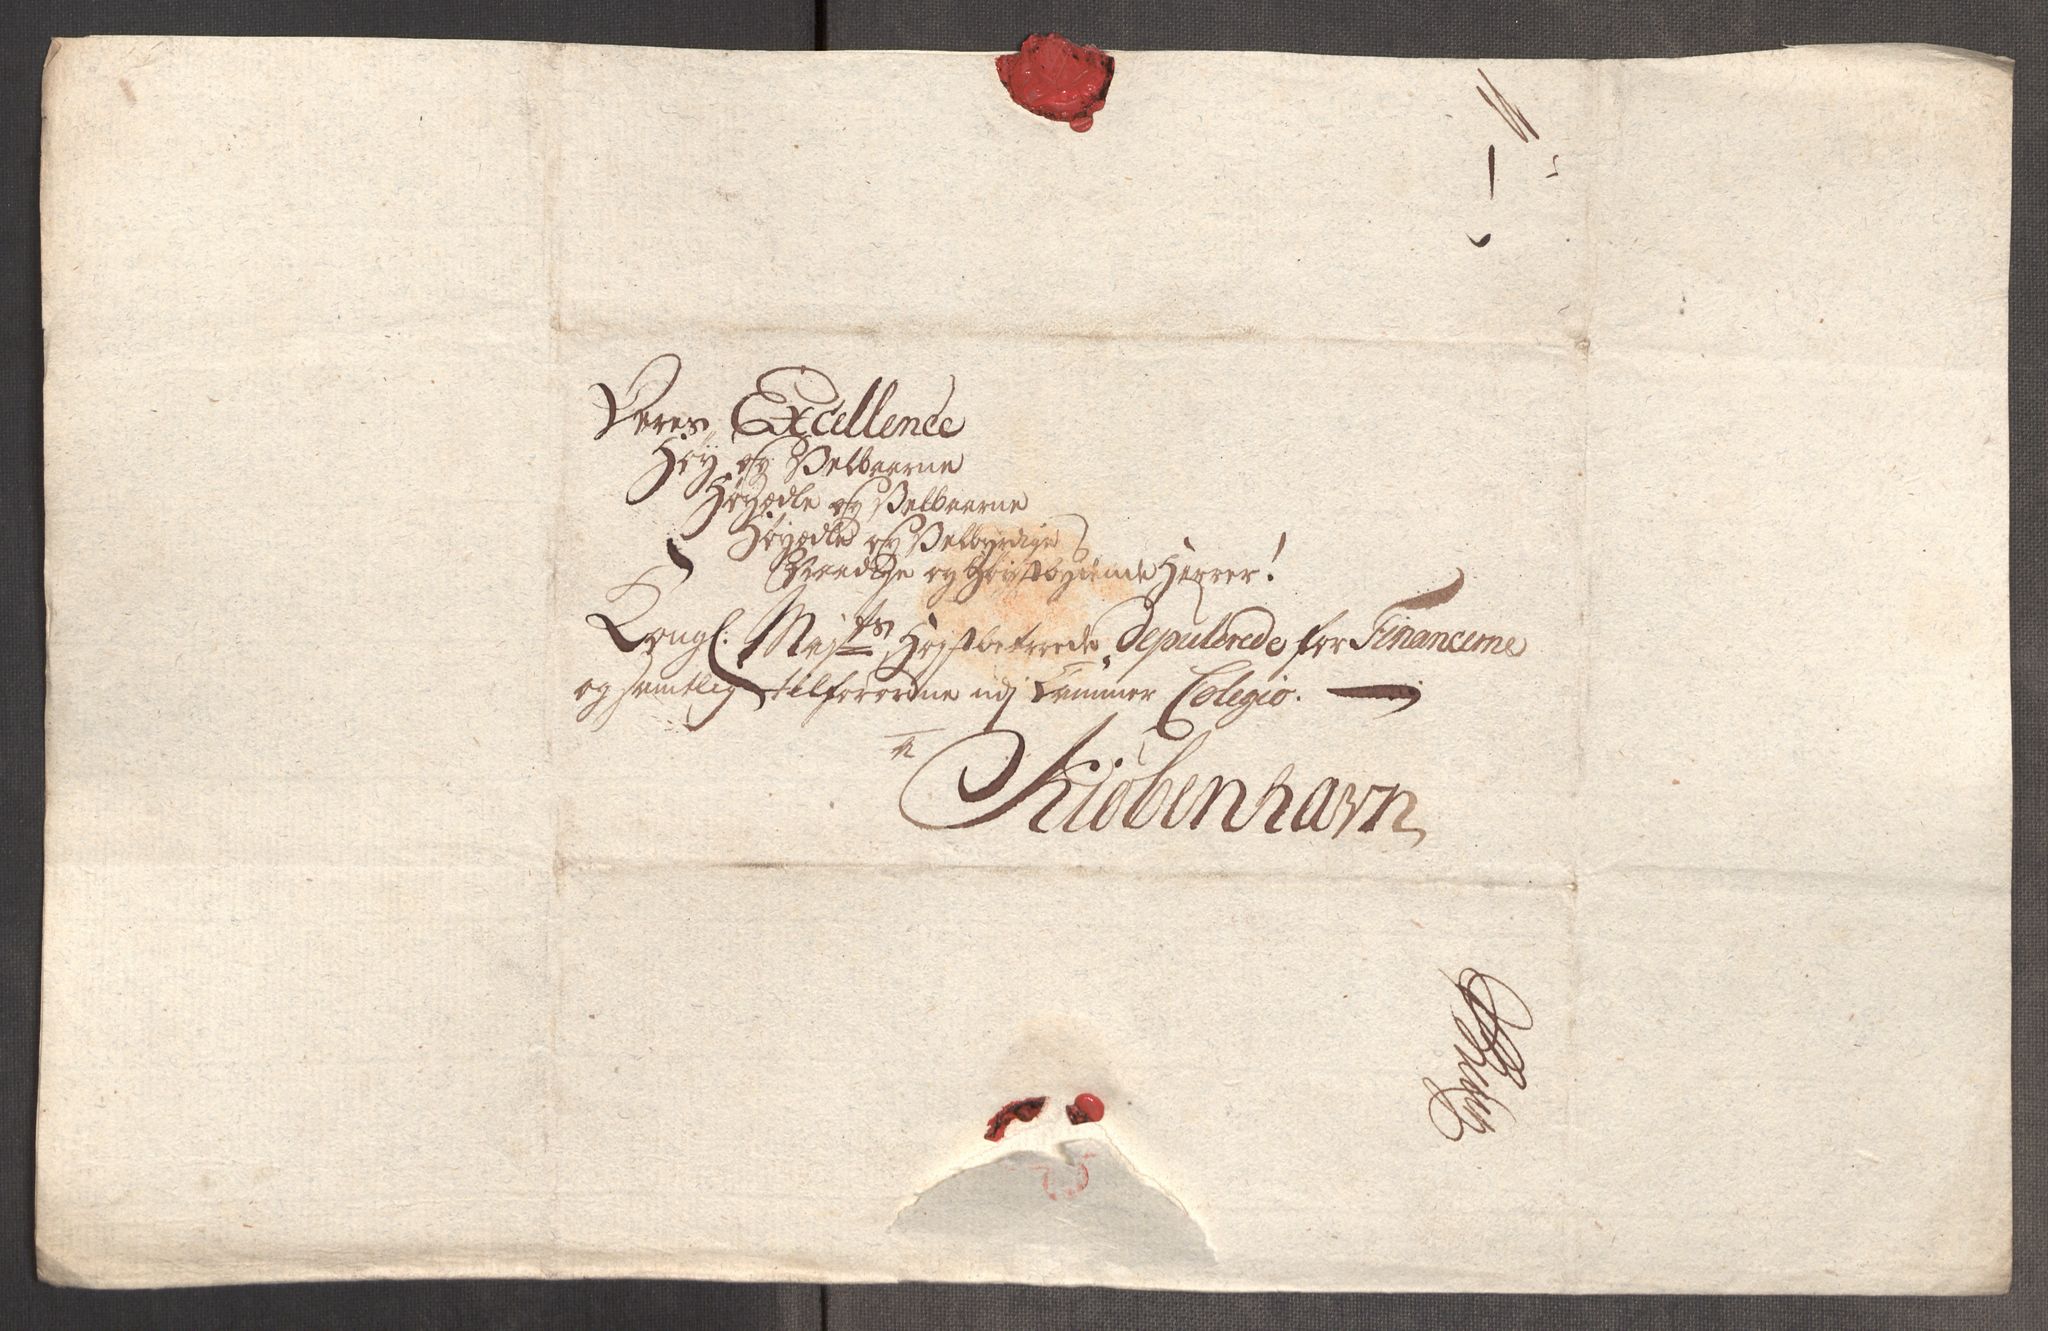 Deres Excellence
Høy og Velbaarne
Høyædle og Velbaarne
Høyædle og Velbyrdige
Gunstige og Høystbydende Herrer!
Kongl: Maj:ts Høystbetroede Deputerede for Financerne
og samtlig tilforordne udj Cammer Colegio.
a
Kiøbenhavn